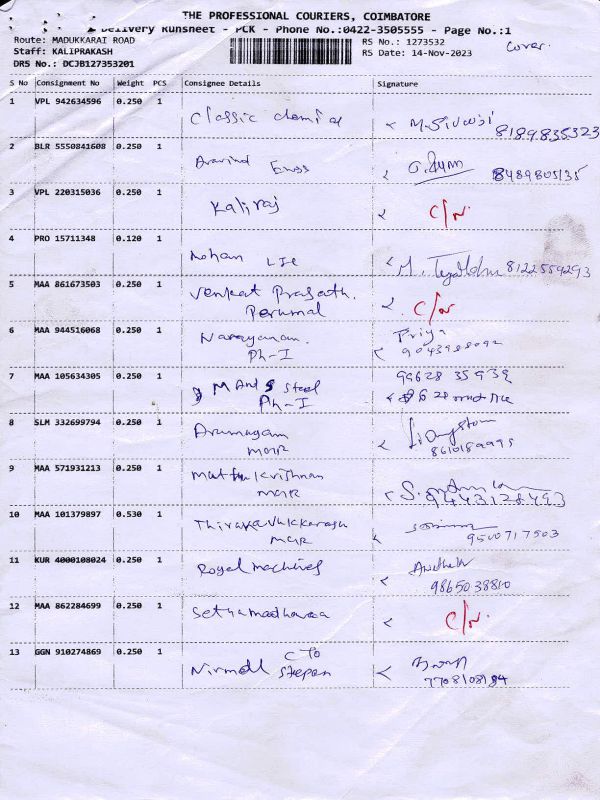 THE PROFESSIONAL COURIERS, COIMBATORE
Delivery Runsheet - PCK - Phone No.:0422-3505555 - Page No.:1
Route: MADUKKARAI ROAD
Staff: KALIPRAKASH
DRS No.: DCJB127353201
RS No.: 1273532
RS Date: 14-Nov-2023
Cover.
S No Consignment No Weight PCS Consignee Details Signature
1 VPL 942634596 0.250 1 Classic chemical M. Sivaji
8189835323
2 BLR 5550841608 0.250 1 Aravind Engs
8489805135
3 VPL 220315036 0.250 1 Kaliraj C/N.
4 PRO 15711348 0.120 1 Mohan M.
8122559293
5 MAA 861673503 0.250 1 Venkat Prasath. C/N
Perumal
6 MAA 944516068 0.250 1 Narayanan. Priya
Ph-I
7 MAA 105634305 0.250 1 M And S Steel 99628 35939
Ph-I
8 SLM 332699794 0.250 1 Arumugam
MGR 8610189995
9 MAA 571931213 0.250 1 Muthukrishnan
MGR 9443128493
10 MAA 101379897 0.530 1
MGR 9500717503
11 KUR 4000108024 0.250 1 Royal machines
9865038810
12 MAA 862284699 0.250 1 C/N.
13 GGN 910274869 0.250 1 C To
Nirmall Steepan
7708108194